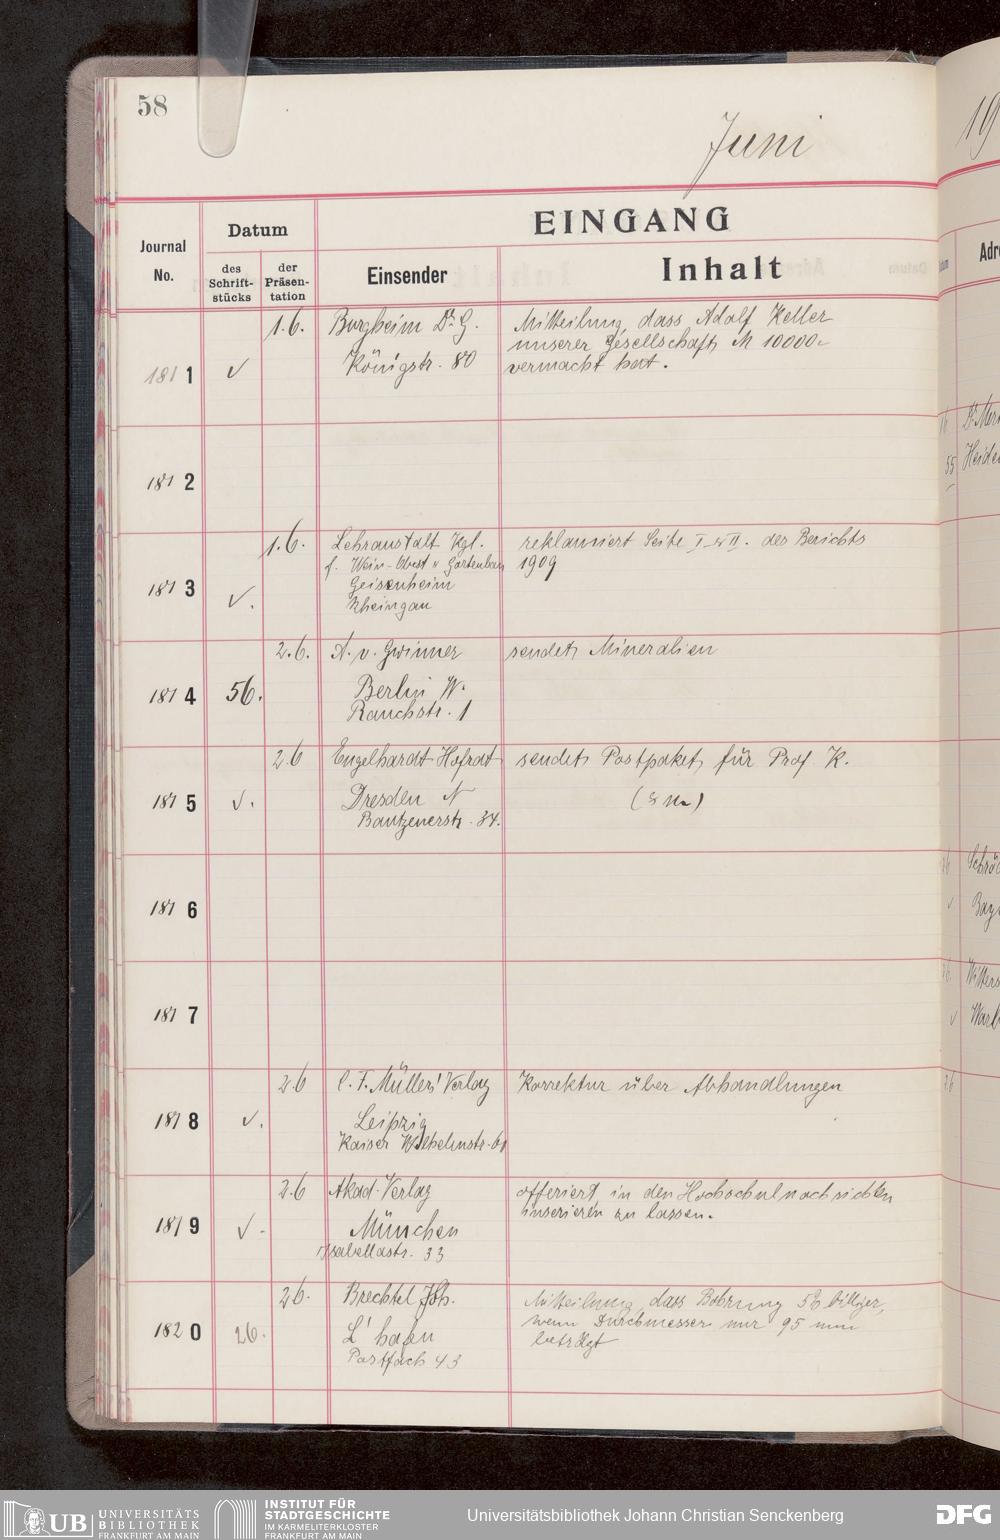 58
Juni
19
Journal
No.
Datum
des
Schrift-
stücks
der
Präsen-
tation
EINGANG
Einsender
Inhalt
Adre
1811
✓
1.6.
Burgheim Dr. G.
Königstr. 80
Mitteilung, dass Adolf Keller
unserer Gesellschaft M 10000.-
vermacht hat.
1812
1813
✓.
1.6.
Lehranstalt Kgl.
f. Wein- Obst u Gartenbau
Geisenheim
Rheingau
reklamiert Seite I u II. des Berichts
1909
1814
56.
2.6.
A. v. Gwinner
Berlin W.
Rauchstr. 1
sendet Mineralien
1815
✓.
2.6
Engelhardt Hofrat
Dresden N
Bautzenerstr. 34.
sendet Postpaket für Prof. K.
1816
1817
1818
✓.
2.6
C. F. Müller' Verlag
Leipzig
Kaiser Wilhelmstr. 61
Korrektur über Abhandlungen
1819
✓.
2.6
Akad. Verlag
München
Isabellastr. 33
offeriert, in den Hochschulnachrichten
inserieren zu lassen.
1820
26.
2.6.
Brechtel Joh.
L'hafen
Postfach 43
Mitteilung, dass Bohrung 5% billiger,
wenn Durchmesser nur 95 mm
beträgt
UB
UNIVERSITÄTS
BIBLIOTHEK
FRANKFURT AM MAIN
INSTITUT FÜR
STADTGESCHICHTE
IM KARMELITERKLOSTER
FRANKFURT AM MAIN
Universitätsbibliothek Johann Christian Senckenberg
DFG